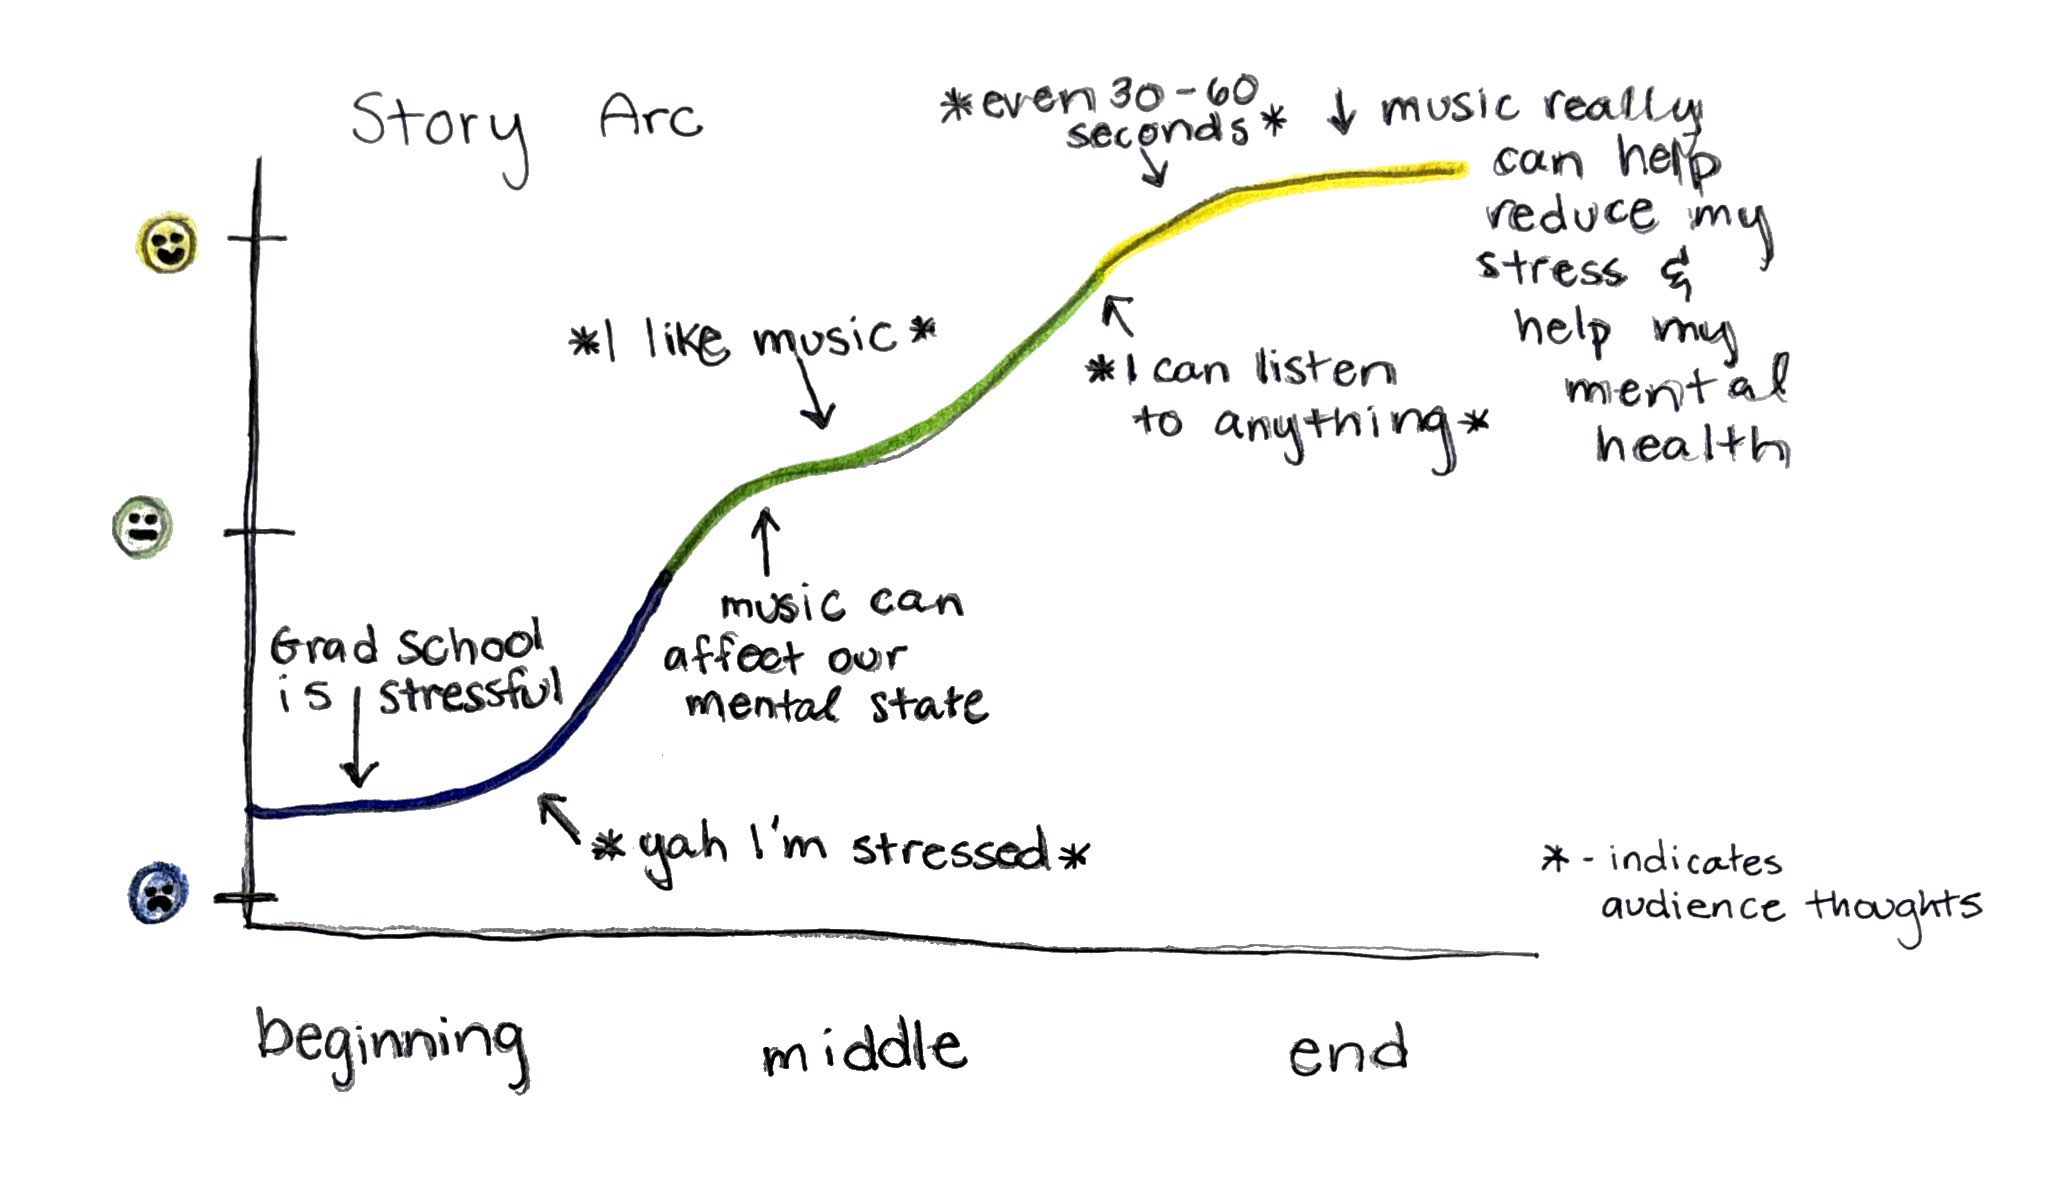 Story Arc
*even 30-60
seconds*
music really
can help
reduce my
stress &
help my
mental
health
*I like music*
*I can listen
to anything*
music can
affect our
mental state
Grad School
is stressful
*yah I'm stressed*
* - indicates
audience thoughts
beginning middle end